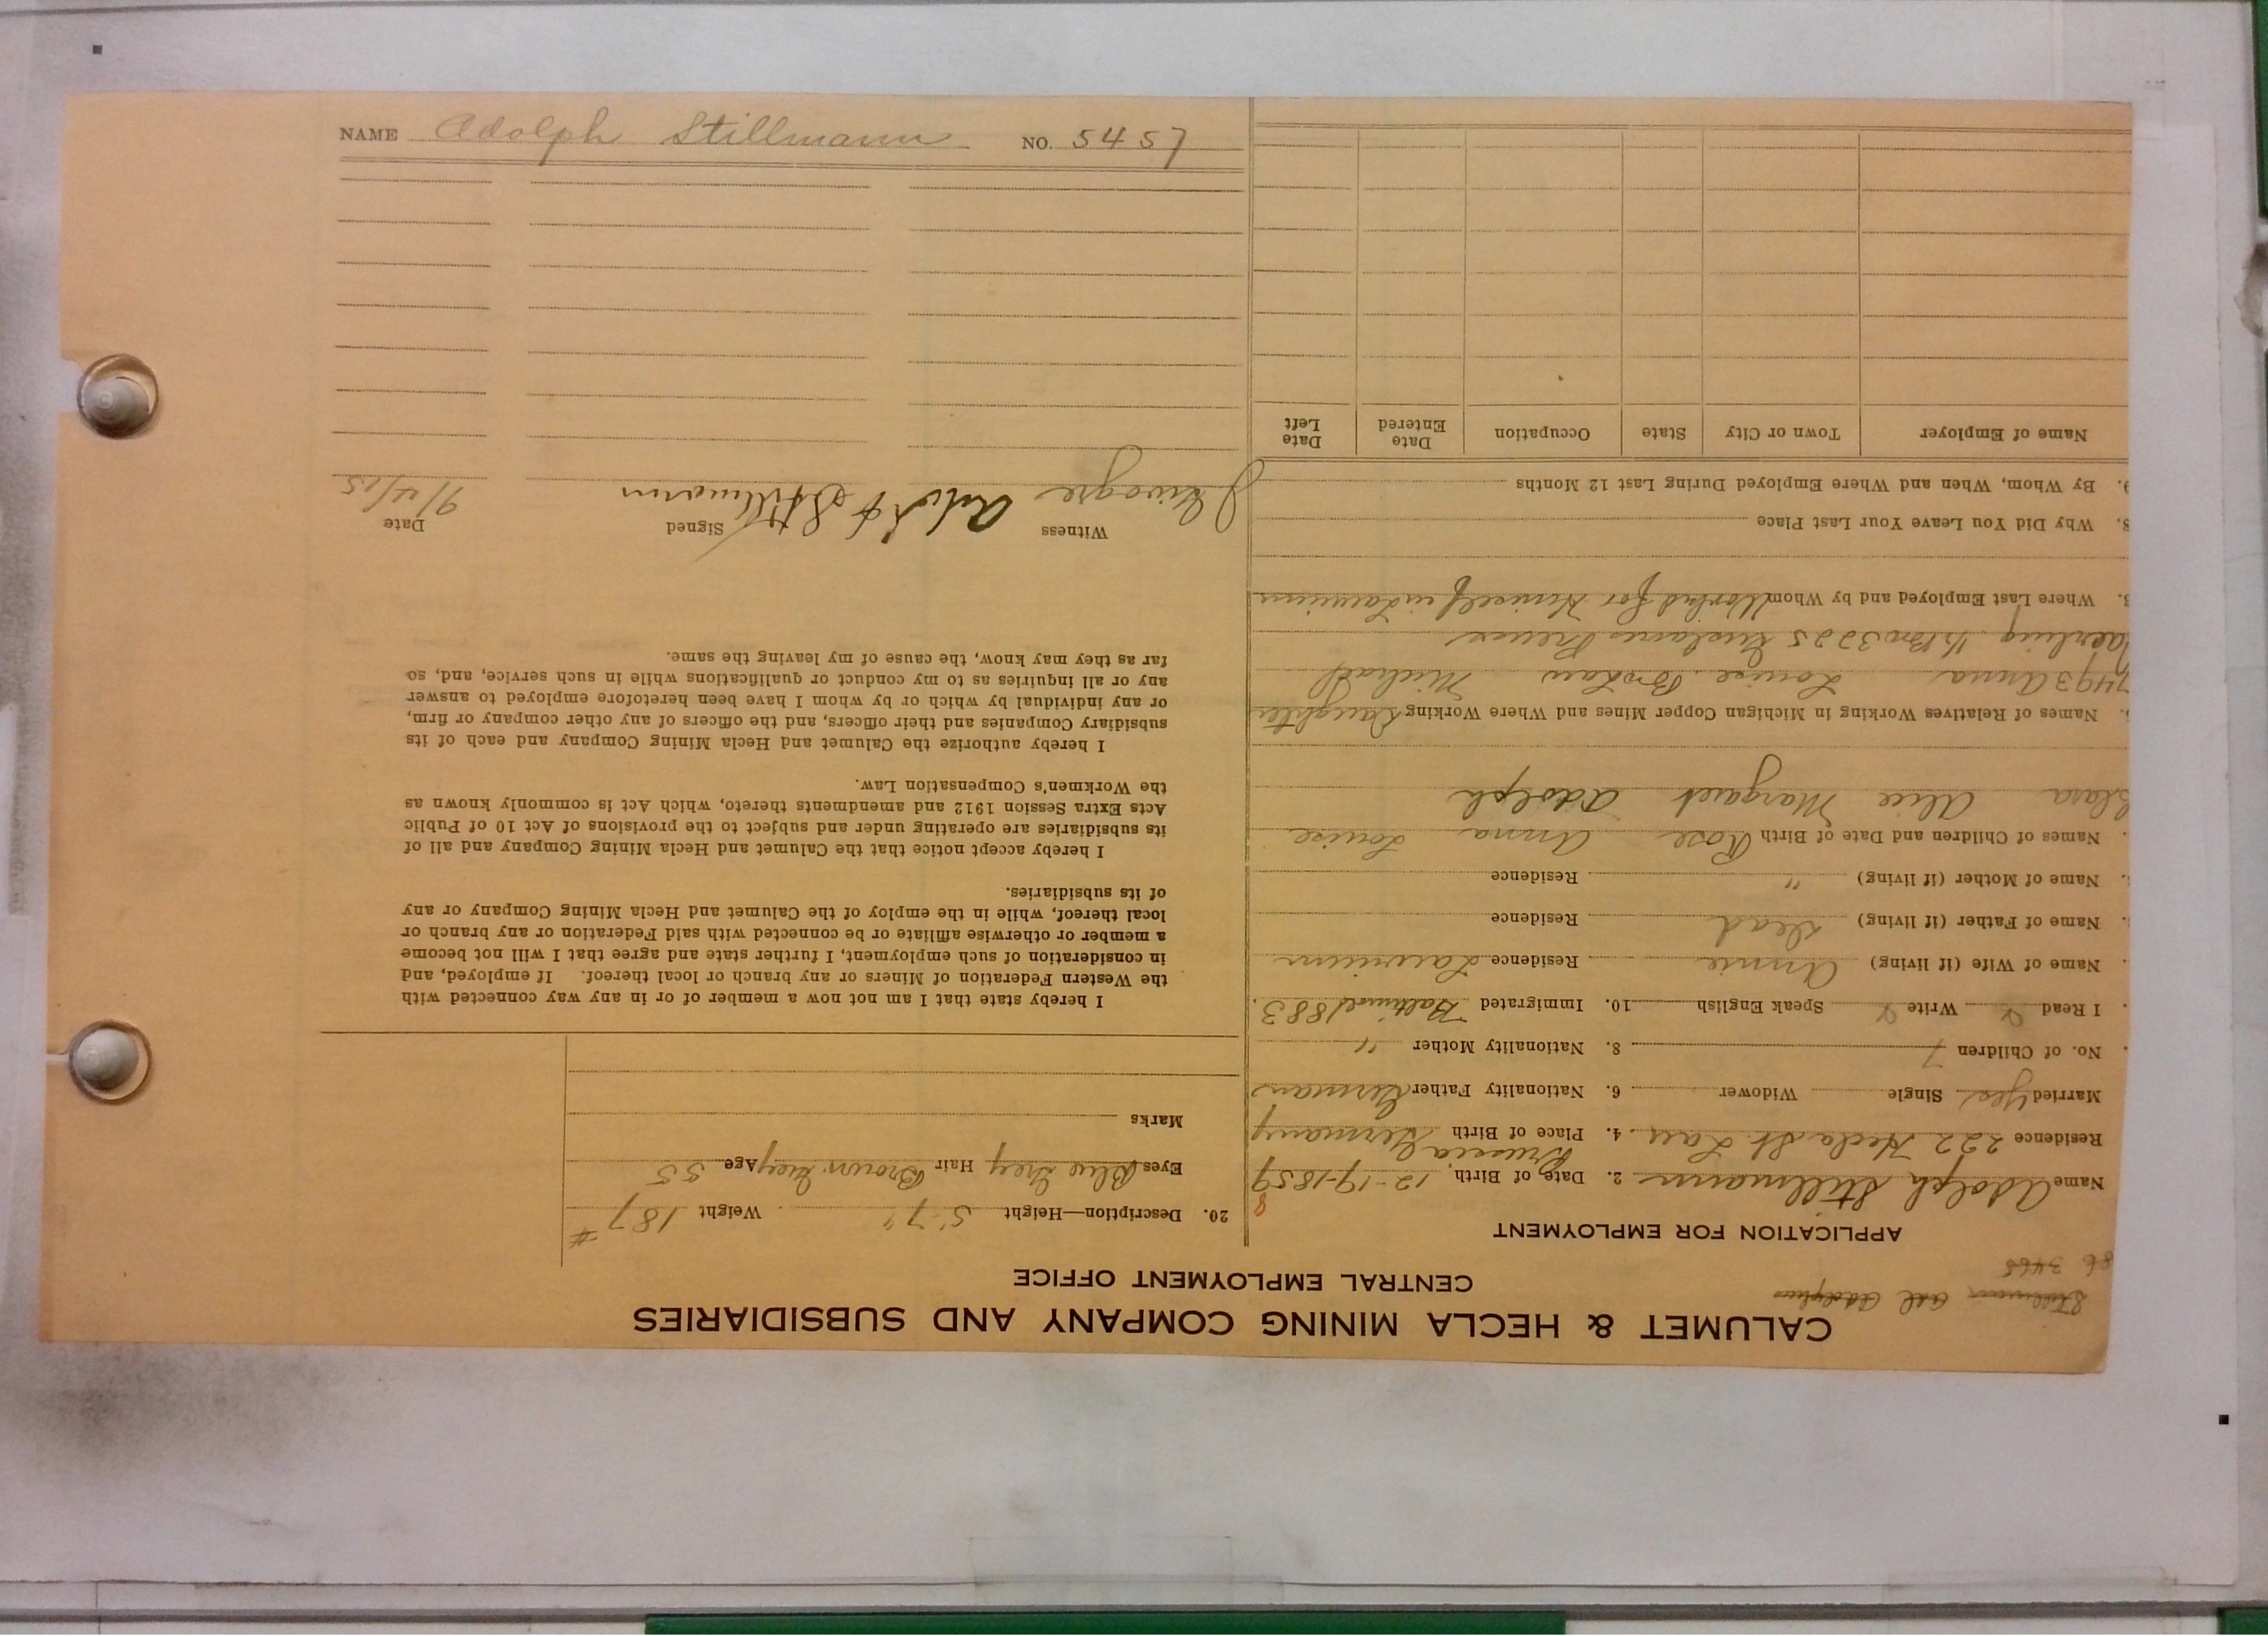 NAME Adolph Stillmann NO. 5457
CALUMET & HECLA MINING COMPANY AND SUBSIDIARIES
CENTRAL EMPLOYMENT OFFICE
APPLICATION FOR EMPLOYMENT
Name Adolph Stillmann 2. Date of Birth 12-19-1859
Prussia
Residence 222 Hecla St. Lau 4. Place of Birth Germany
Married Yes Single Widower 6. Nationality Father German
No. of Children 7 8. Nationality Mother "
I Read Write Speak English 10. Immigrated 1883
Name of Wife (if living) Annie Residence Laurium
Name of Father (if living) Dead Residence
Name of Mother (if living) " Residence
Names of Children and Date of Birth Rose Anna Louise
Clara Alice Margaret Adolph
Names of Relatives Working in Michigan Copper Mines and Where Working Daughters
7493 Anna Louise Michael
3225
Where Last Employed and by Whom Worked for Himself in Laurium
Why Did You Leave Your Last Place
9. By Whom, When and Where Employed During Last 12 Months
Name of Employer Town or City State Occupation Date Entered Date Left
20. Description—Height 5'7" Weight 187 #
Eyes Blue Grey Hair Brown Grey Age 55
Marks
I hereby state that I am not now a member of or in any way connected with
the Western Federation of Miners or any branch or local thereof. If employed, and
in consideration of such employment, I further state and agree that I will not become
a member or otherwise affiliate or be connected with said Federation or any branch or
local thereof, while in the employ of the Calumet and Hecla Mining Company or any
of its subsidiaries.
I hereby accept notice that the Calumet and Hecla Mining Company and all of
its subsidiaries are operating under and subject to the provisions of Act 10 of Public
Acts Extra Session 1912 and amendments thereto, which Act is commonly known as
the Workmen's Compensation Law.
I hereby authorize the Calumet and Hecla Mining Company and each of its
subsidiary Companies and their officers, and the officers of any other company or firm,
or any individual by which or by whom I have been heretofore employed to answer
any or all inquiries as to my conduct or qualifications while in such service, and, so
far as they may know, the cause of my leaving the same.
Witness Signed Date
Stillmann 9/4/15